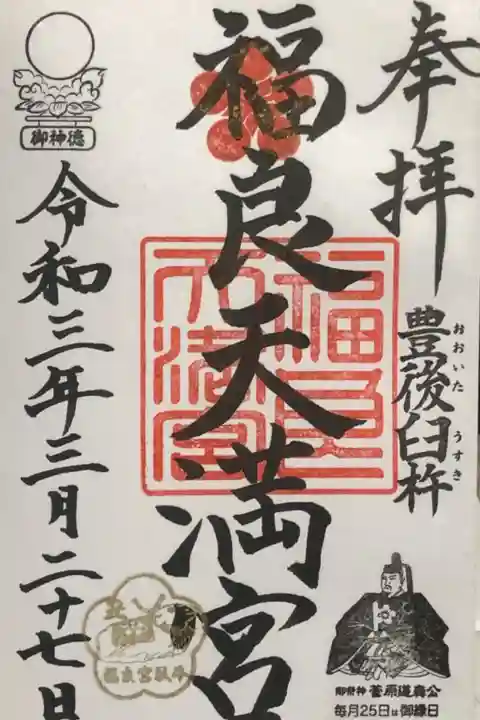 奉拝
豊後臼杵
おおいた うすき
福良天満宮
福良天満宮
御神徳
令和三年三月二十七日
御祭神 菅原道真公
毎月25日は御縁日